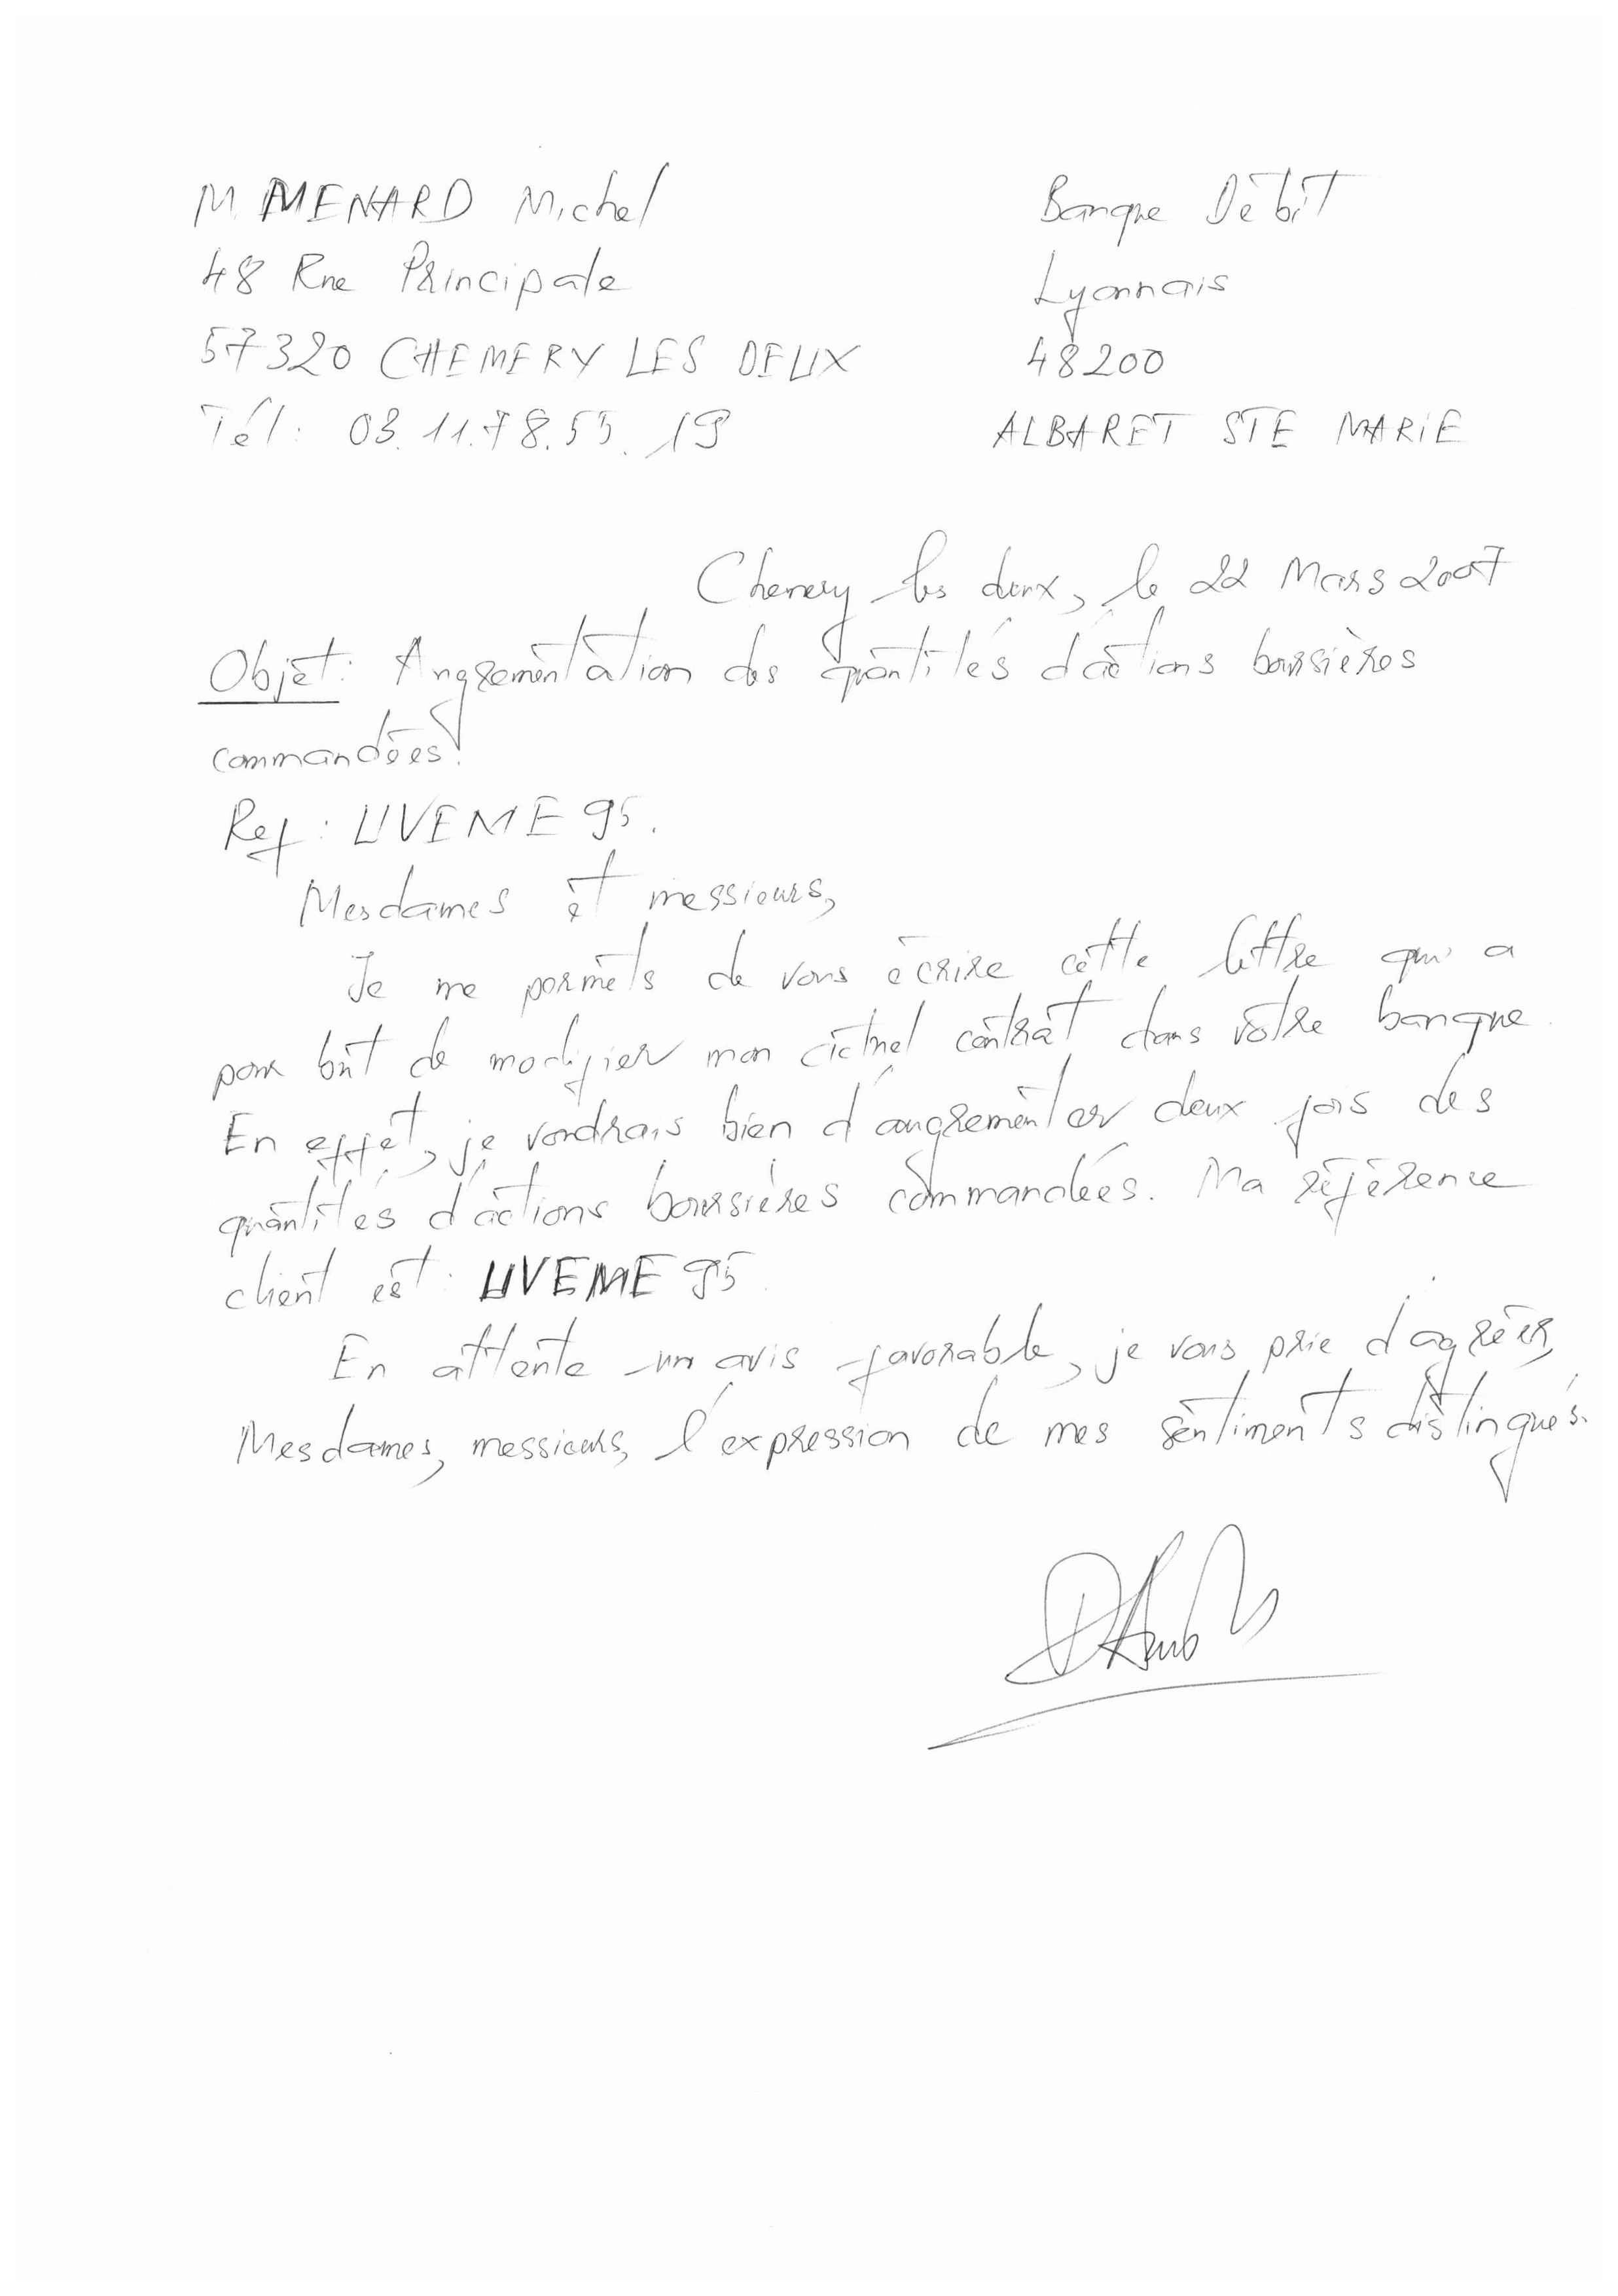 M. MENARD Michel
48 Rue Principale
57320 CHEMERY LES DEUX
Tél : 03.11.78.55.19
Banque Débit
Lyonnais
48200
ALBARET STE MARIE
Chemery les deux, le 22 Mars 2007
Objet : Augrementation des quantités d'actions boursières
commandées.
Ref : UVEME95.
Mesdames et messieurs,
Je me permets de vous écrire cette lettre qui a
pour but de modifier mon actuel contrat dans votre banque.
En effet, je voudrais bien d'augrementer deux fois des
quantités d'actions boursières commandées. Ma référence
client est : UVEME95.
En attente un avis favorable, je vous prie d'agréer,
Mesdames, messieurs, l'expression de mes sentiments distingués.